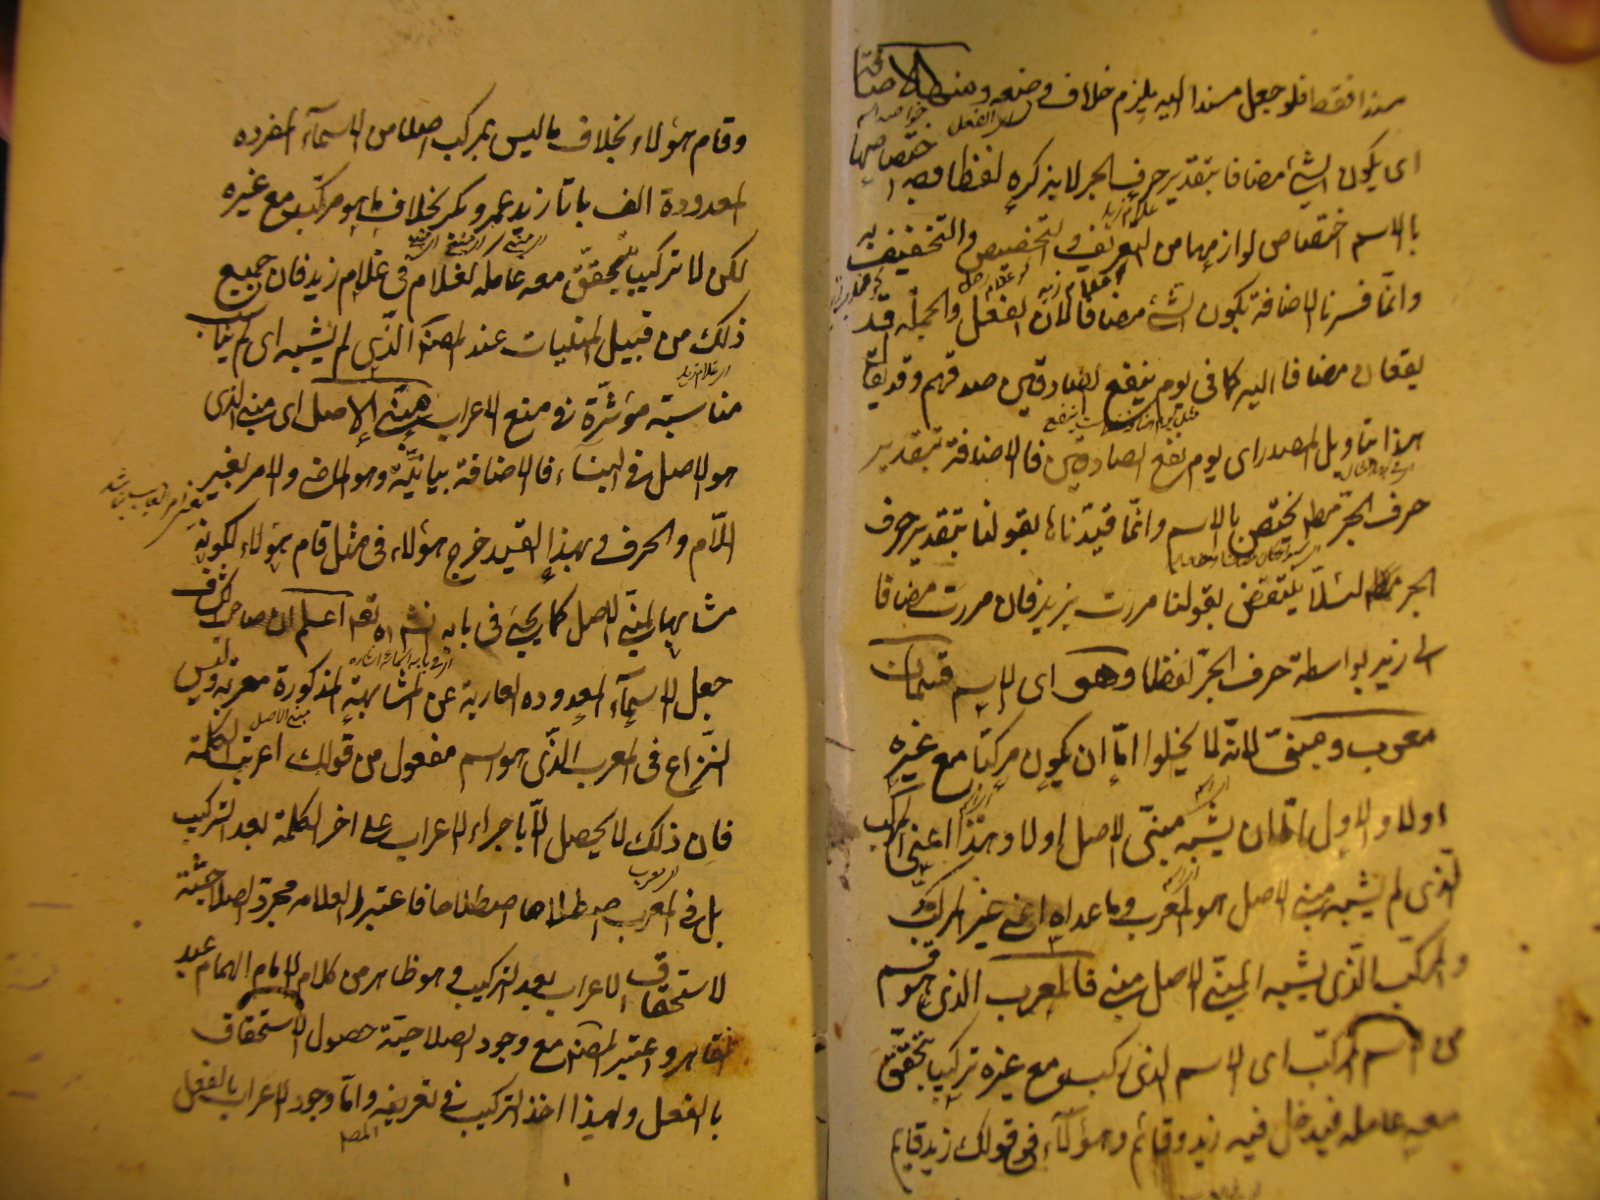 مسندا فقط فلو جعل مسندا اليه يلزم خلاف وضعه ومنها الاضافة
اى يكون الشئ مضافا بتقدير حرف الجر لا بذكره لفظا ووجه اختصاصها
بالاسم اختصاص لوازمها من التعريف والتخصيص والتخفيف به
وانما فسرنا الاضافة بكون الشئ مضافا لان الفعل والجملة قد
يقعان مضافا اليه كما فى يوم ينفع الصادقين صدقهم وقد يقال
هذا بتأويل المصدر اى يوم نفع الصادقين فالاضافة بتقدير
حرف الجر مطلقا تختص بالاسم وانما قيدناها بقولنا بتقدير حرف
الجر لئلا ينتقض بقولنا مررت بزيد فان مررت مضاف
الى زيد بواسطة حرف الجر لفظا وهو اى الاسم قسمان
معرب ومبنى لانه لا يخلوا اما ان يكون مركبا مع غيره
اولا والاول اما ان يشبه مبنى الاصل اولا وهذا اعنى المركب
الذى لم يشبه مبنى الاصل هو المعرب وما عداه اعنى غير المركب
والمركب الذى يشبه المبنى الاصل مبنى فالمعرب الذى هو قسم
من الاسم المركب اى الاسم الذى ركب مع غيره تركيبا يتحقق
معه عامله فيدخل فيه زيد وقائم وهؤلاء فى قولك زيد قايم
وقام هؤلاء بخلاف ما ليس بمركب اصلا من الاسمآء المفرده
المعدودة الف با تا زيد عمرو بكر بخلاف ما هو مركب مع غيره
لكن لا تركيبا يتحقق معه عامله كغلام فى غلام زيد فان جميع
ذلك من قبيل المبنيات عند المصنف الذى لم يشبه اى لم يناسب
مناسبة مؤثرة فى منع الاعراب مبنى الاصل اى مبنى الذى
هو الاصل فى البناء فالاضافة بيانية وهو الماضى والامر بغير
اللام والحرف وبهذا القيد خرج هؤلاء فى مثل قام هؤلاء لكونه
مشابها لمبنى الاصل كما يجئ فى بابه ان شاء الله تعالى اعلم ان صاحب الكشاف
جعل الاسمآء المعدوده العارية عن المشابهة المذكورة معربة وليس
النزاع فى المعرب الذى هو اسم مفعول من قولك اعربت الكلمة
فان ذلك لا يحصل الا باجراء الاعراب على اخر الكلمة بعد التركيب
بل فى المعرب اصطلاحا فاعتبر العلامه مجرد الصلاحية
لاستحقاق الاعراب بعد التركيب وهو ظاهر من كلام الامام الهمام عبد
القاهر واعتبر المصنف مع وجود الصلاحية حصول الاستحقاق
بالفعل ولهذا اخذ التركيب فى تعريفه واما وجود الاعراب بالفعل